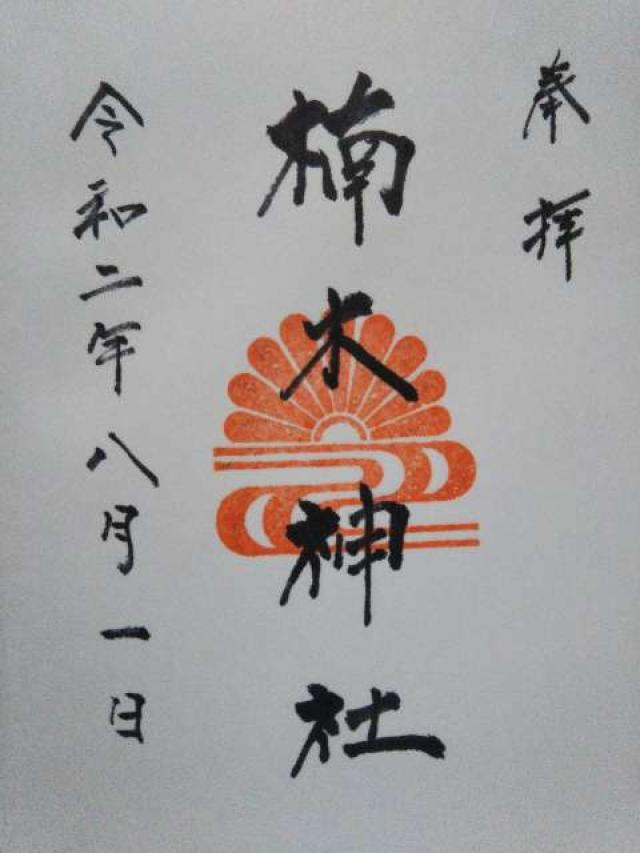 奉拝
楠木神社
令和二年八月一日